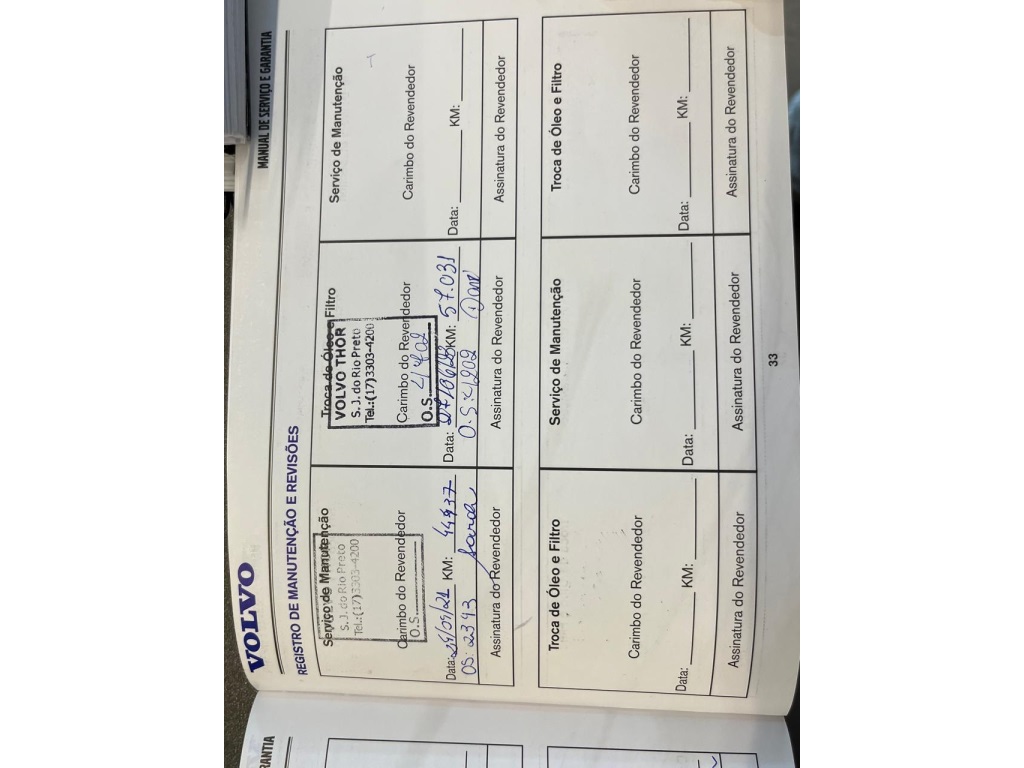 VOLVO
MANUAL DE SERVIÇO E GARANTIA
REGISTRO DE MANUTENÇÃO E REVISÕES
Serviço de Manutenção
S. J. do Rio Preto
Tel.:(17)3303-4200
Carimbo do Revendedor
O.S.
Data: /21 KM: 44937
OS: 2393
Assinatura do Revendedor
Troca de Óleo e Filtro
VOLVO THOR
S. J. do Rio Preto
Tel.:(17)3303-4200
Carimbo do Revendedor
O.S.
Data: KM: 57.031
O.S:
Assinatura do Revendedor
Serviço de Manutenção
Carimbo do Revendedor
Data: KM:
Assinatura do Revendedor
Troca de Óleo e Filtro
Carimbo do Revendedor
Data: KM:
Assinatura do Revendedor
Serviço de Manutenção
Carimbo do Revendedor
Data: KM:
Assinatura do Revendedor
Troca de Óleo e Filtro
Carimbo do Revendedor
Data: KM:
Assinatura do Revendedor
33
RANTIA